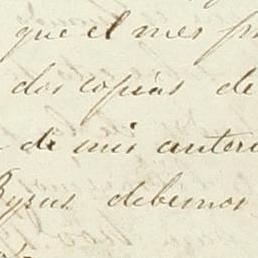 que el mes p
dos copias de
de mis anteri
Byrus debemos